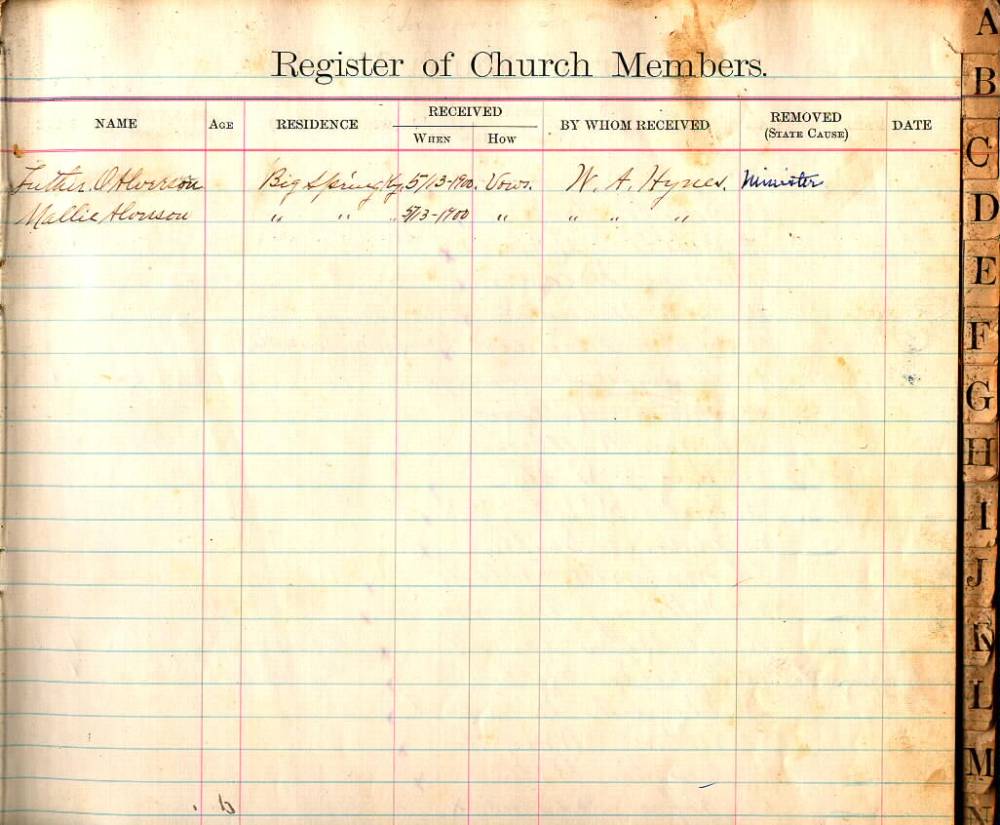 Register of Church Members.
NAME AGE RESIDENCE RECEIVED WHEN HOW BY WHOM RECEIVED REMOVED (STATE CAUSE) DATE
Luther. O Alverson Big Spring Ky 5/13-1900. Vows. W. A. Hynes. Minister
Mallie Alverson " " " 5/13-1900 " " " "
A
B
C
D
E
F
G
H
I
J
K
L
M
N